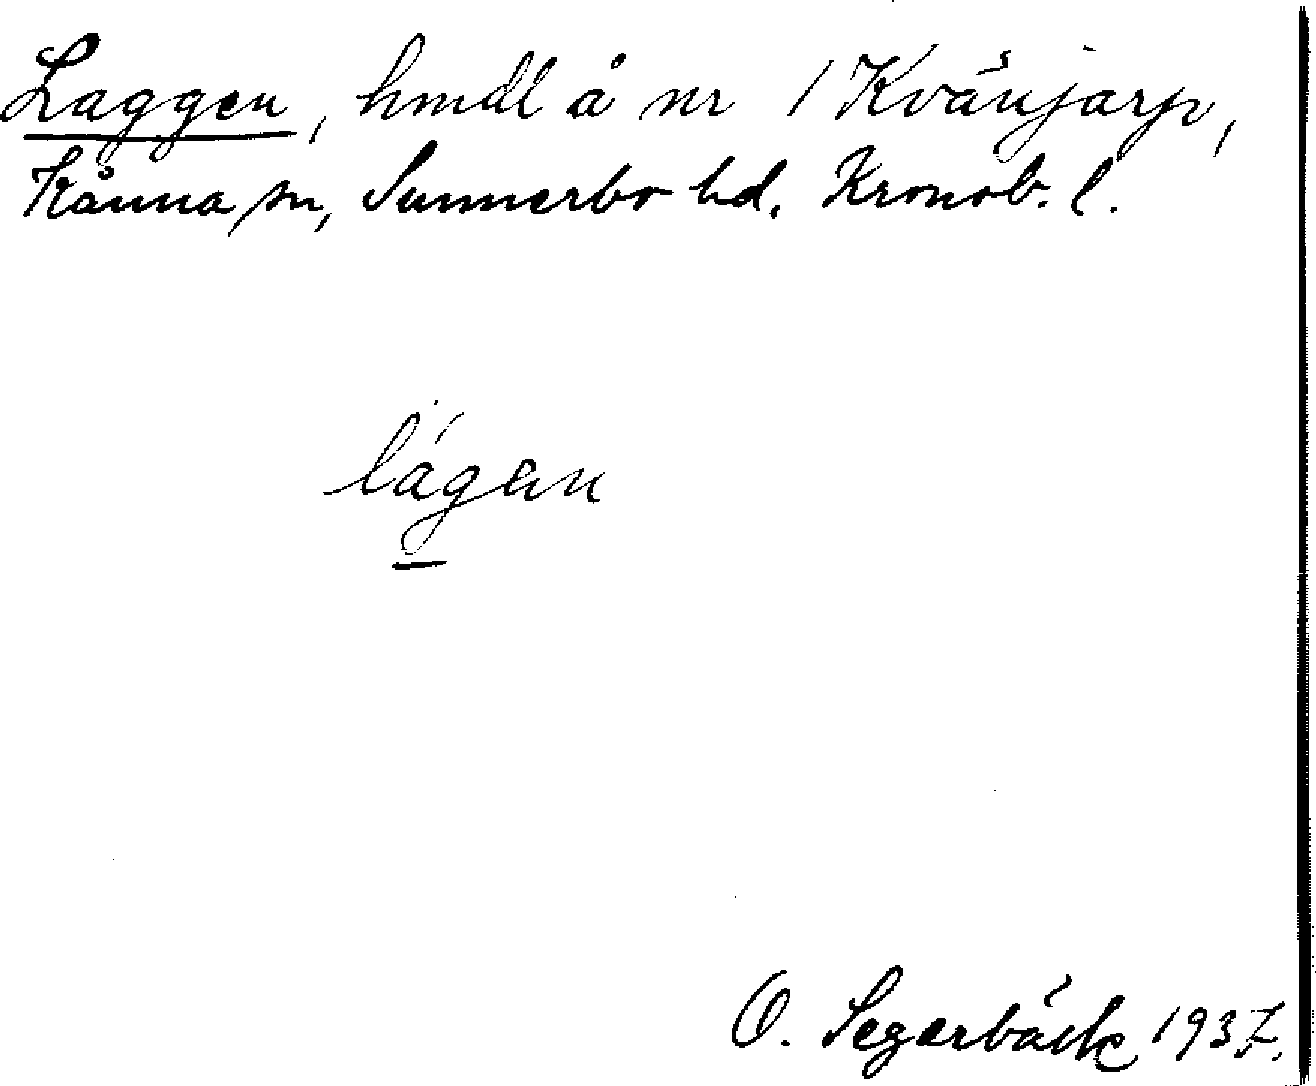 Laggen, hmdl å nr 1 Kvänjarp,
Kånna sn, Sunnerbo hd. Kronob. l.
lágen
O. Segerbäck 1937.